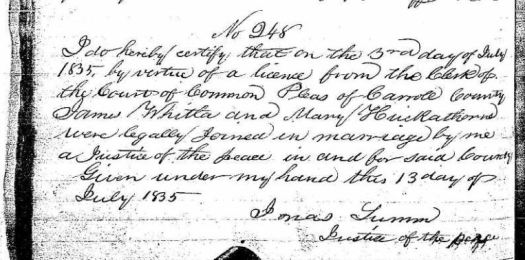 No 248
I do hereby certify that on the 3rd day of July
1835, by virtue of a licence from the Clerk of
the Court of Common Pleas of Carrole County
Jame Whitla and Mary Huckathorn
were legally Joined in marriage by me
a Justice of the peace in and for said County
Given under my hand this 13 day of
July 1835
Jonas Tumm
Justice of the peace